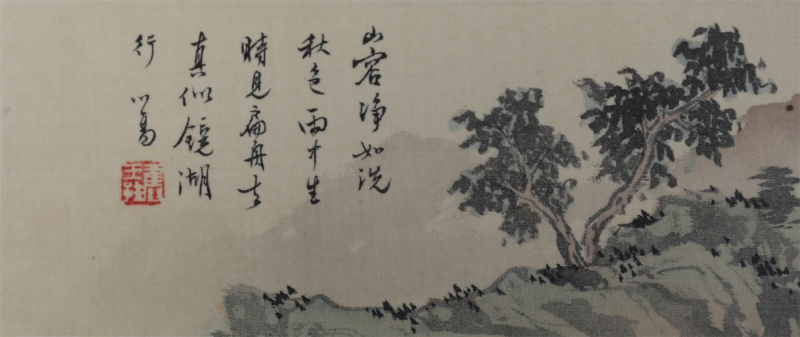 山容淨如洗
秋色雨中生
時見扁舟去
真似鏡湖
行 心畬